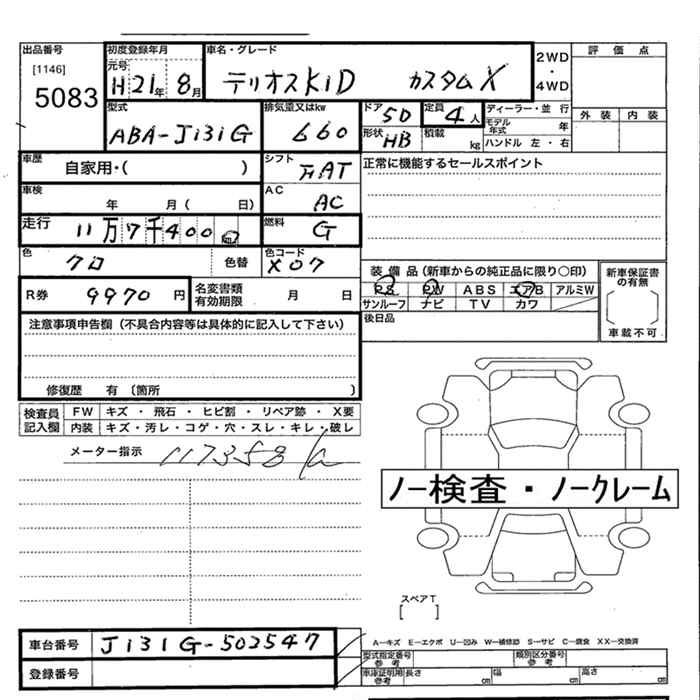 出品番号
[1146]
5083
初度登録年月
元号
H21年 8月
車名・グレード
テリオスKID カスタムX
2WD
・
4WD
評価点
外装 内装
型式
ABA-J131G
排気量又はkw
660
ドア
5D
定員
4人
形状
HB
積載
kg
ディーラー・並行
モデル年式 年
ハンドル 左・右
車歴
自家用・( )
シフト
AT
正常に機能するセールスポイント
車検
年 月( 日)
AC
AC
走行
11万7千400
燃料
G
色
クロ
色替
色コード
X07
装備品(新車からの純正品に限り○印)
PS PW ABS エアB アルミW
サンルーフ ナビ TV カワ
新車保証書の有無
[ ]
車載不可
R券
9970円
名変書類有効期限
月 日
後日品
注意事項申告欄(不具合内容等は具体的に記入して下さい)
修復歴 有 〔箇所 〕
検査員記入欄
FW キズ・飛石・ヒビ割・リペア跡・X要
内装 キズ・汚レ・コゲ・穴・スレ・キレ・破レ
メーター指示
117358
ノー検査・ノークレーム
スペアT
[ ]
車台番号
J131G-502547
登録番号
A―キズ E―エクボ U―凹み W―補修跡 S―サビ C―腐食 XX―交換済
型式指定番号参考
類別区分番号参考
車庫証明参考
長さ cm 幅 cm 高さ cm